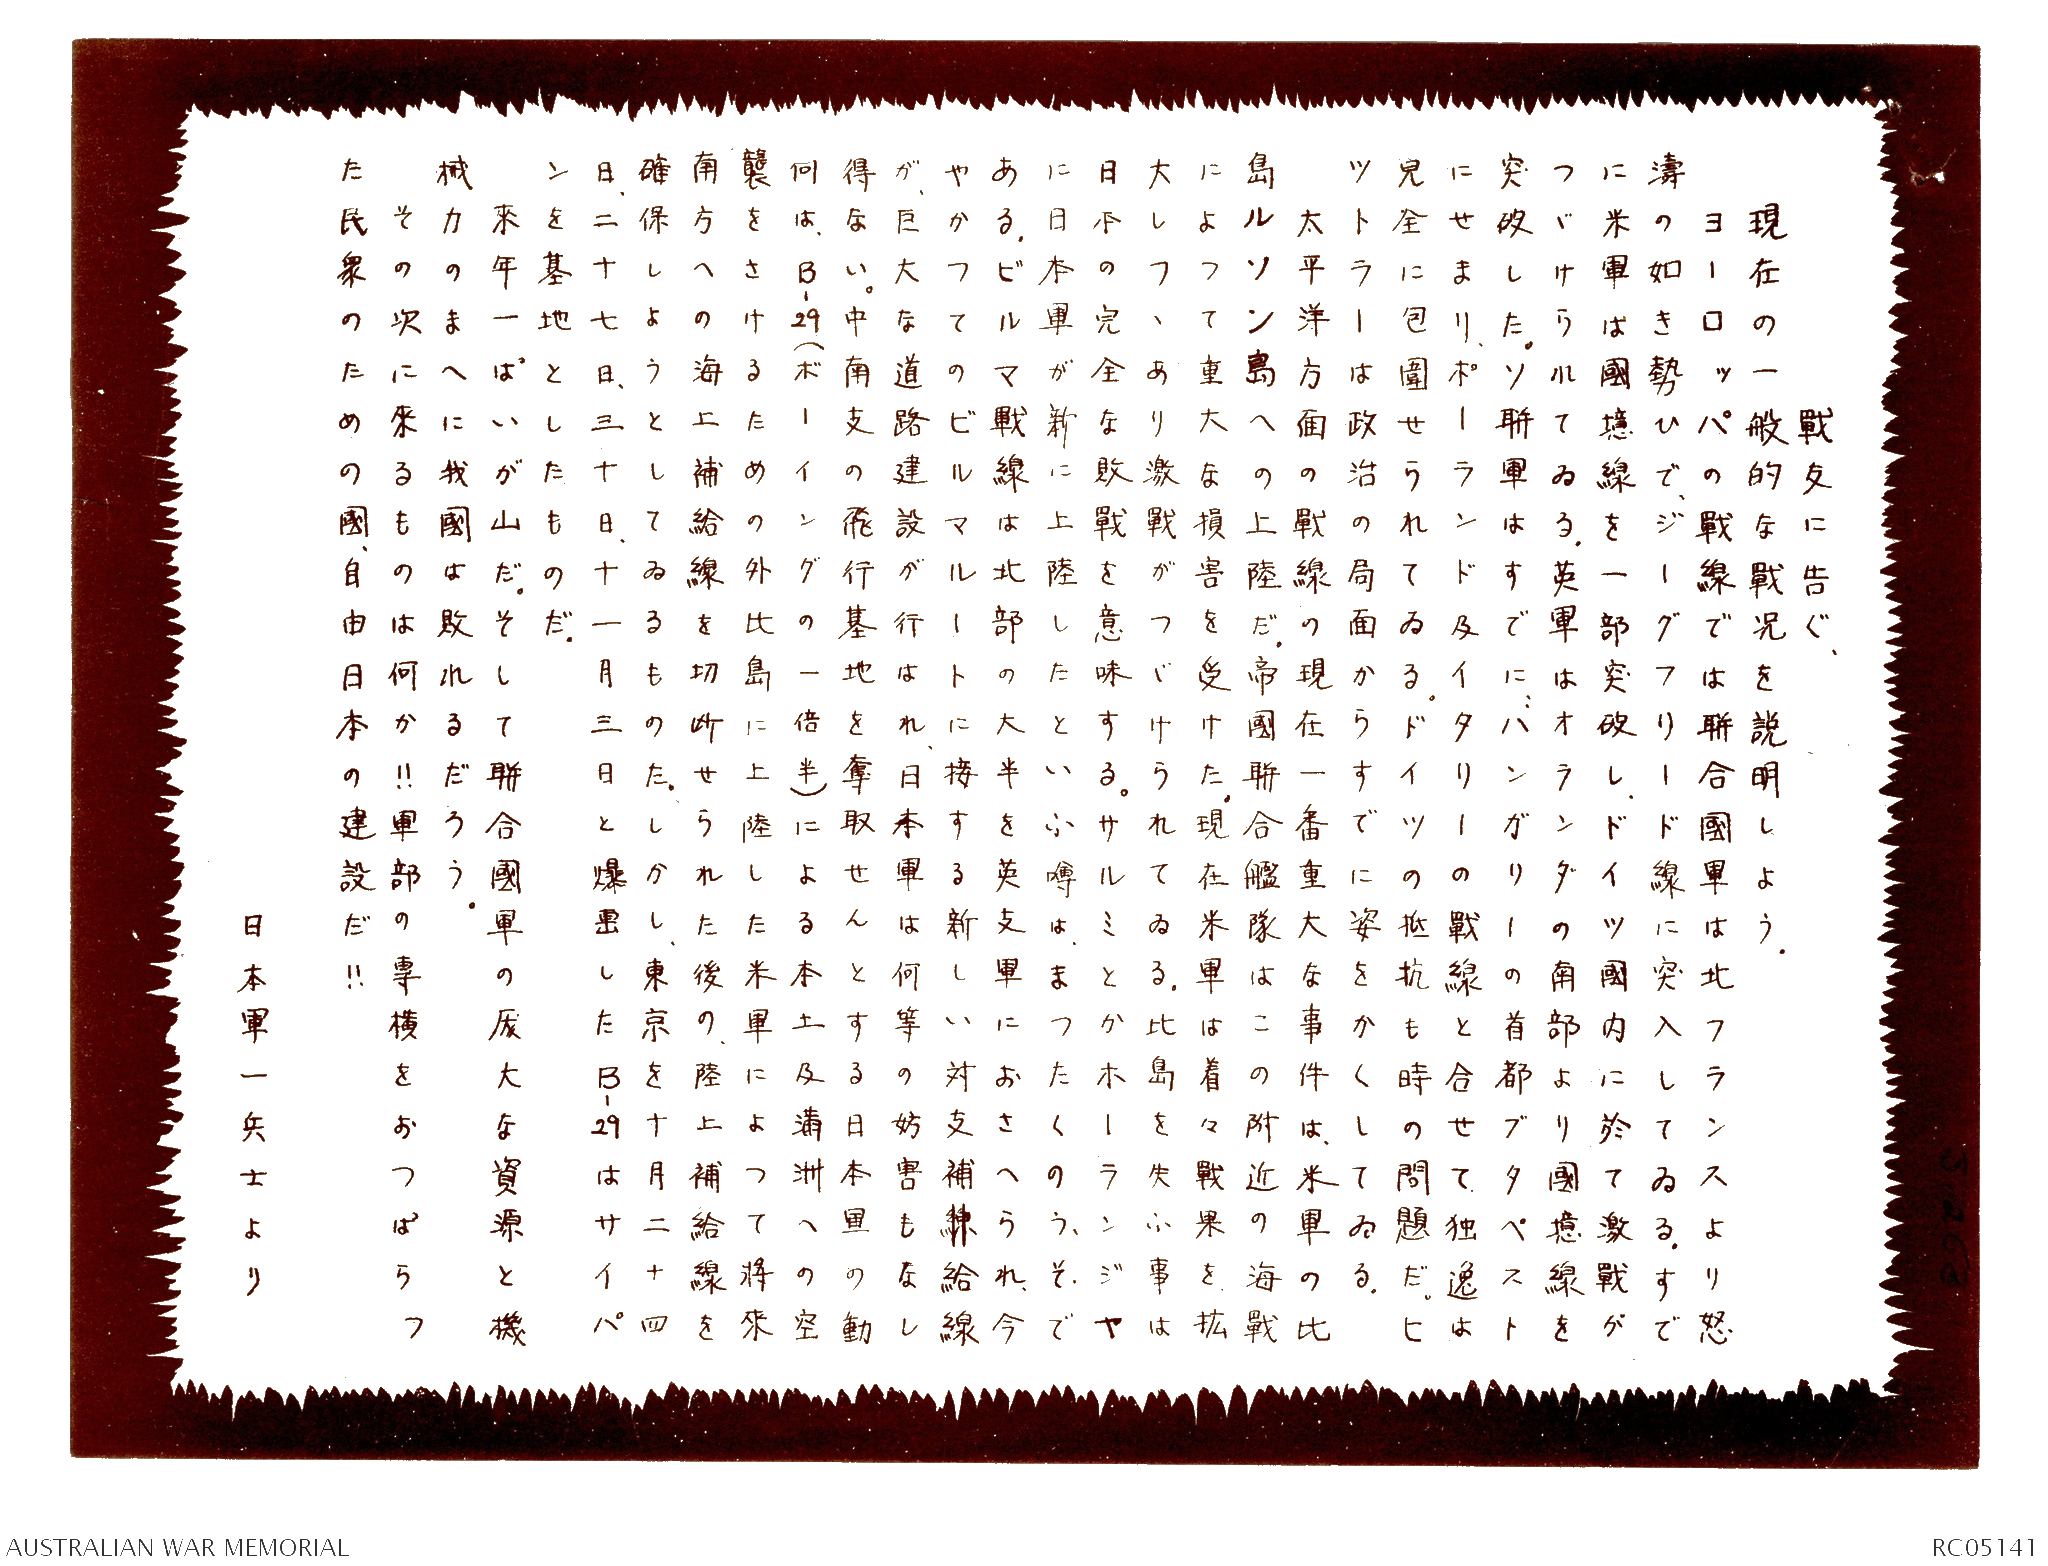 戰友に告ぐ、
現在の一般的な戰況を説明しよう．
ヨーロッパの戰線では聨合國軍は北フランスより怒
濤の如き勢ひで、ジーグフリード線に突入してゐる．すで
に米軍は國境線を一部突破し、ドイツ國内に於て激戰が
つゞけらルてゐる．英軍はオランダの南部より國境線を
突破した．ソ聨軍はすでに、ハンガリーの首都ブタペスト
にせまり、ポーランド及イタリーの戰線と合せて、独逸は
完全に包圍せられてゐる。ドイツの抵抗も時の問題だ。ヒ
ツトラーは政治の局面からすでに姿をかくしてゐる．
太平洋方面の戰線の現在一番重大な事件は、米軍の比
島ルソン島への上陸だ．帝國聨合艦隊はこの附近の海戰
によつて重大な損害を受けた．現在米軍は着々戰果を拡
大しつゝあり激戰がつゞけられてゐる．比島を失ふ事は
日本の完全な敗戰を意味する。サルミとかホーランジヤ
に日本軍が新に上陸したといふ噂は、まつたくのうそで
ある．ビルマ戰線は北部の大半を英支軍におさへられ、今
やかつてのビルマルートに接する新しい対支補給線
が、巨大な道路建設が行はれ、日本軍は何等の妨害もなし
得ない。中南支の飛行基地を奪取せんとする日本軍の動
何は、B-29(ボーイングの一倍半)による本土及満洲への空
襲をさけるための外比島に上陸した米軍によつて将來
南方への海上補給線を切断せられた後の、陸上補給線を
確保しようとしてゐるものた．しかし、東京を十月二十四
日、二十七日、三十日、十一月三日と爆撃したB-29はサイパ
ンを基地としたものだ．
來年一ぱいが山だ．そして聨合國軍の厖大な資源と機
械力のまへに我國は敗れるだろう．
その次に來るものは何か!!軍部の専横をおつぱらつ
た民衆のための國、自由日本の建設だ!!
日本軍一兵士より
AUSTRALIAN WAR MEMORIAL
RC05141